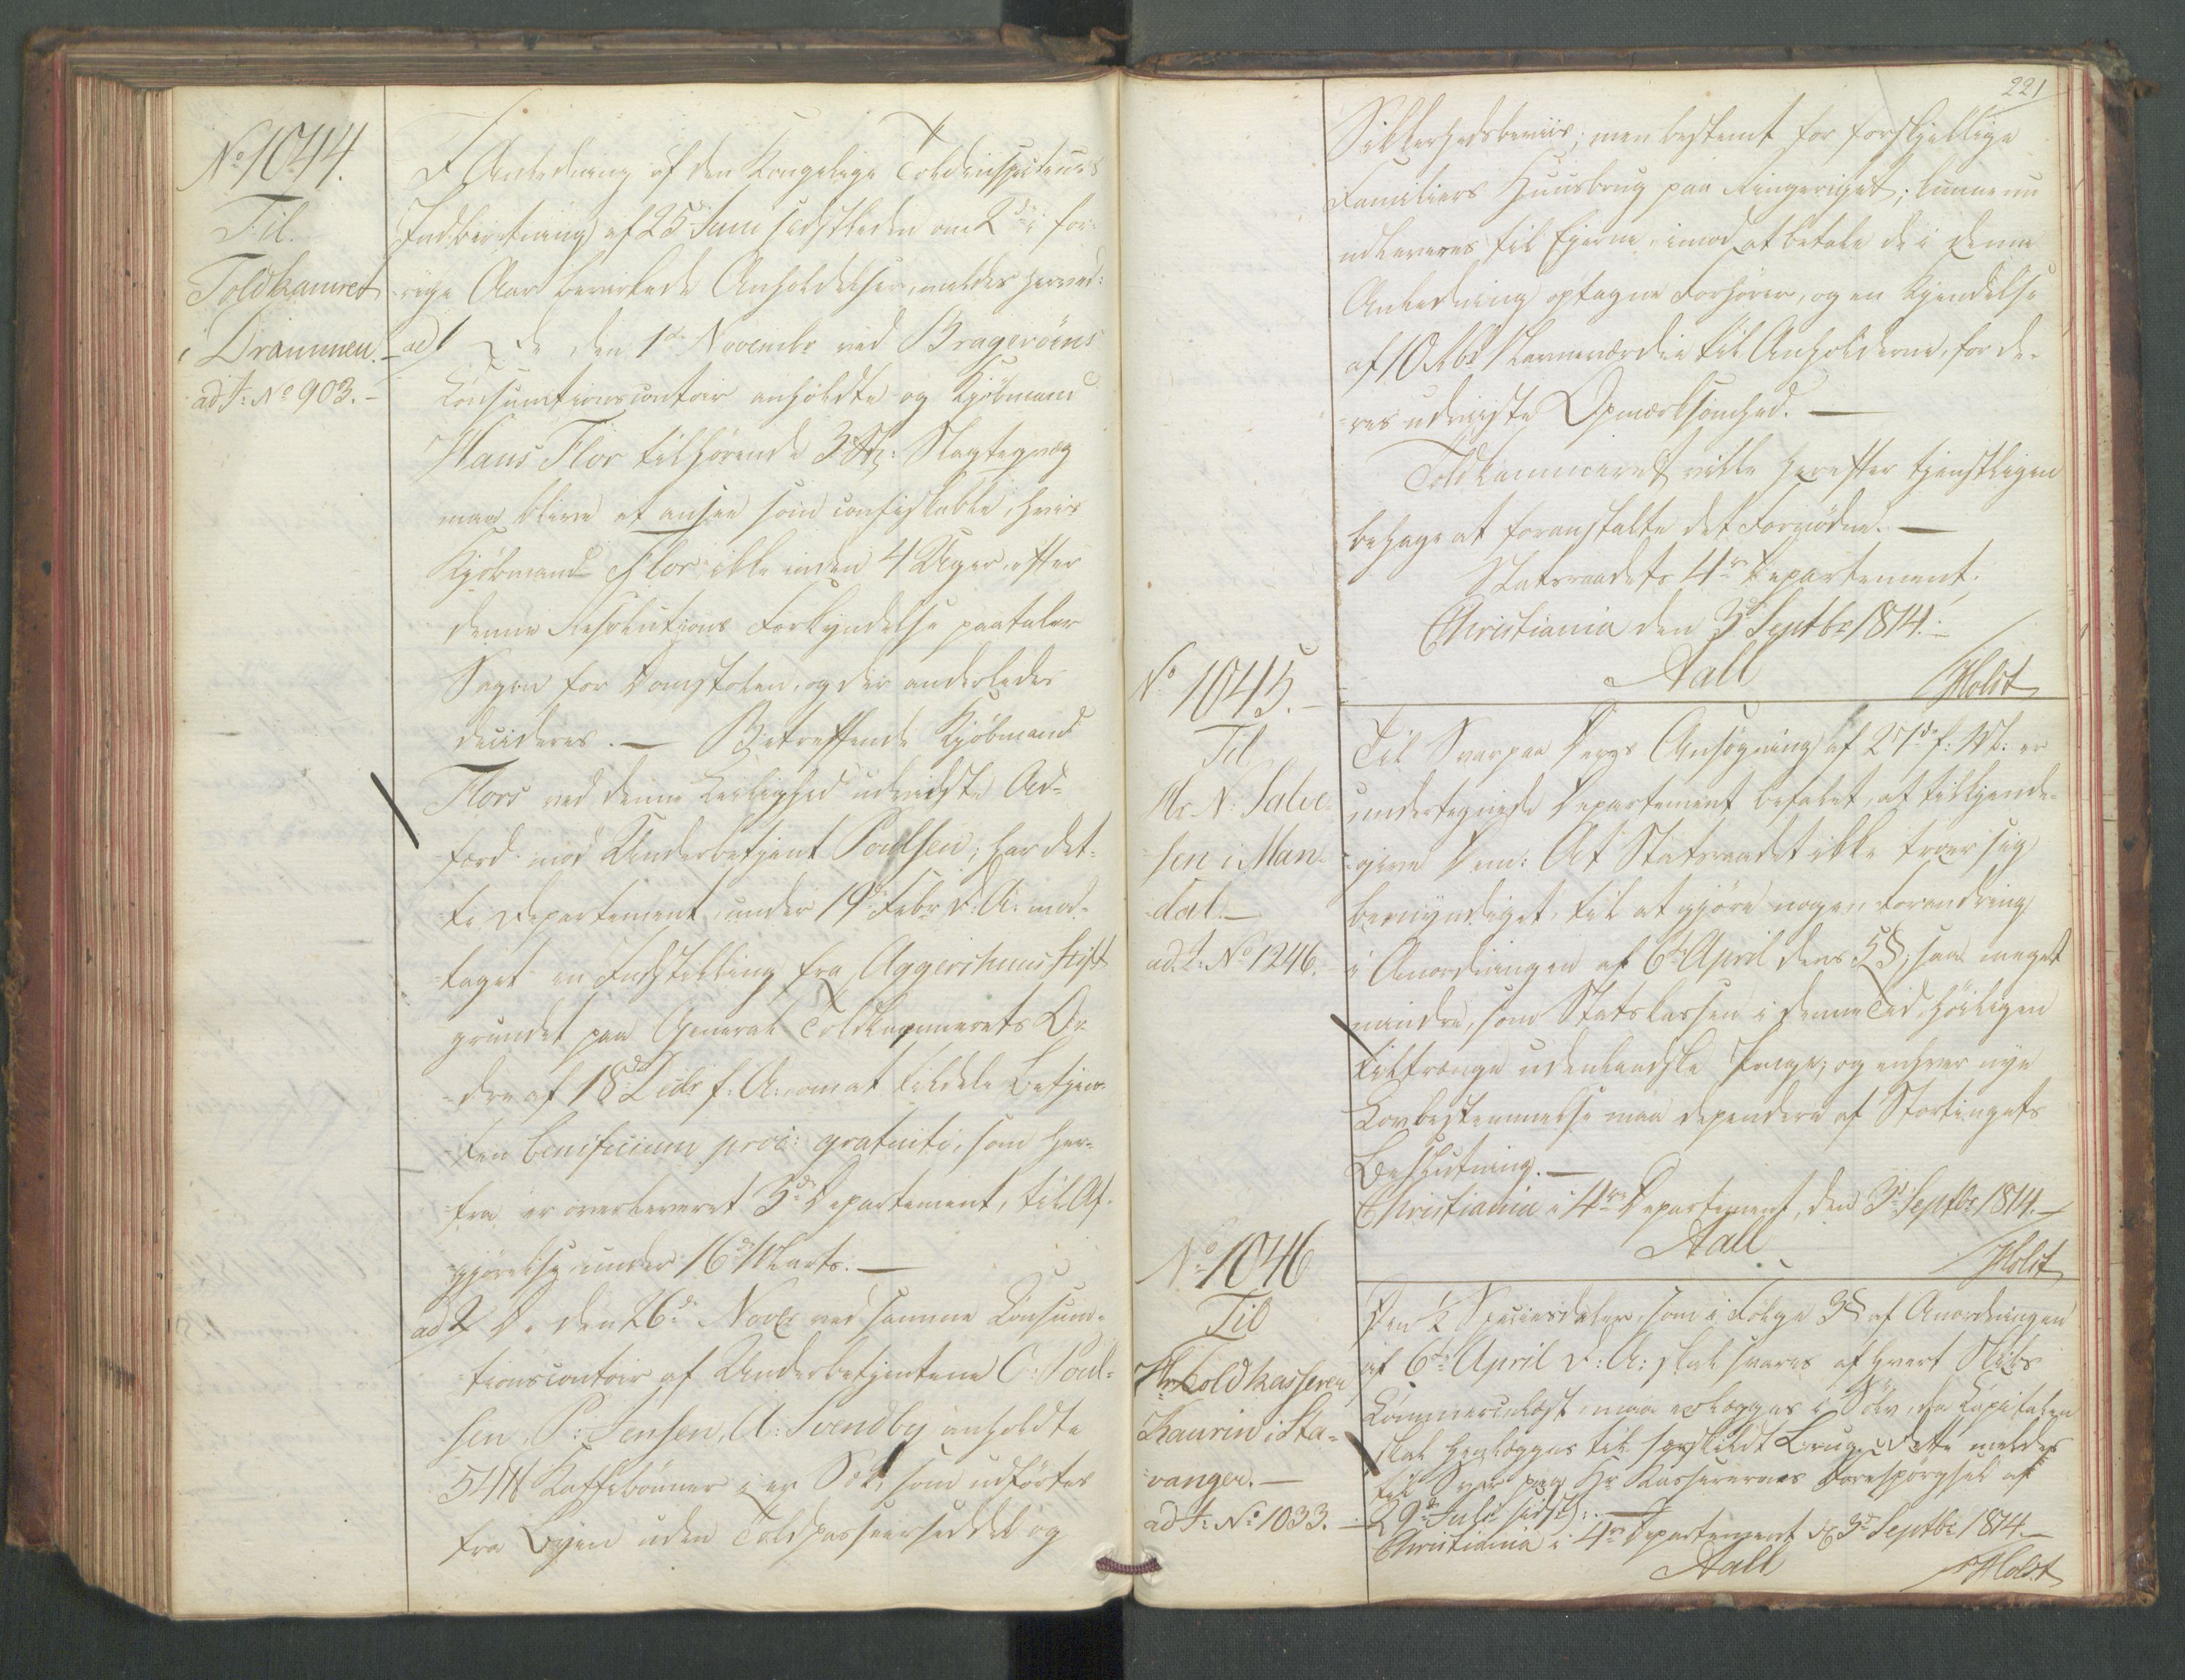 No 1044.
Til
Toldkamret
i Drammen.
ad J: No 903.-
I Anledning af den Kongelige Toldinspecteurs
Indberetning af 25 Juni sidstleden om 2de i for-
rige Aar bevirkede Anholdelser, meldes herved:
ad 1 De den 1ste Novembr ved Bragerøens
Consumtionscontoir anholdte og Kjøbmand
Hans Flor tilhørende 3 St: Slagteqvæg
maa blive at ansee som confiskable, hvis
Kjøbmand Flor ikke inden 4 Uger efter
denne Resolutions Forkyndelse paataler
Sagen for Domstolen, og der anderledes
decideres. — Betreffende Kjøbmand
Flors ved denne Leilighed udviiste Ad-
færd mod Underbetjent Poulsen; har det-
te Departement under 19de Febr d: A: mod-
taget en Indstilling fra Aggershuus Stift
grundet paa General Toldkammerets Or-
dre af 18de Decbr f: A: om at tildele Betjen-
ten benificium proc: gratuiti, som her-
fra er overleveret 3de Departement, til Af-
gjørelse under 16de Marts. —
ad 2 De den 26de Novbr ved samme Consum-
tionscontoir af Underbetjentene C: Poul-
sen, P: Jensen, A: Svendby anholdte
54 ℔ Kaffebønner i en Sæk, som udførtes
fra Byen uden Toldpasseerseddel og
221
Sikkerhedsbeviis; men bestemt for forskjellige
Familiers Huusbrug paa Ringeriget; kunne nu
udleveres til Ejerne, imod at betale de i denne
Anledning optagne Forhører, og en Kjendelse
af 10 Rbd Navneværdie til Anholderne, for de-
res udviiste Opmærksomhed. —
Toldkammeret ville herefter tjenstligen
behage at foranstalte det Fornødne. —
Statsraadets 4de Departement.
Christiania den 3de Septbr 1814.
Aall
Holst
No 1045.-
Til
Hr. N: Salve-
sen i Man-
dal.—
ad J: No 1246.
Til Svar paa Deres Ansøgning af 27de f: Mt: er
undertegnede Departement befalet, at tilkjende-
give Dem: At Statsraadet ikke troer sig
bemyndiget, til at gjøre nogen Forandring
i Anordningen af 6te April dens 5 §, saa meget
mindre, som Statskassen i denne Tid, høiligen
tiltrænge udenlandske Penge; og enhver nye
Lovbestemmelse maa dependere af Stortingets
Beslutning.—
Christiania i 4de Departement, den 3de Septbr 1814.—
Aall
Holst
No 1046
Til
Hr Toldkasserer
Kaurin i Sta-
vanger.—
ad J: No 1033.—
Den ½ Speciesdaler, som i Følge 3 § af Anordningen
af 6te April d: A: skal svares af hvert Skibs
Commercelæst, maa erlægges i Sølv, da Capitalen
skal henlægges til særskildt Brug. Dette meldes
til Svar paa Hr Kassererens Forespørgsel af
29de Juli sidstl: —
Christiania i 4de Departement d: 3de Septbr 1814.—
Aall
Holst